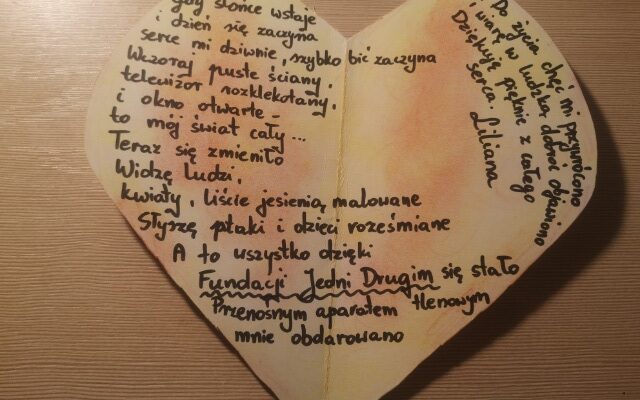 gdy słońce wstaje
i dzień się zaczyna
serce mi dziwnie, szybko bić zaczyna
Wczoraj puste ściany,
telewizor rozklekotany,
i okno otwarte -
to mój świat cały ...
Teraz się zmieniło
Widzę ludzi,
kwiaty, liście jesienią malowane
Słyszę ptaki i dzieci roześmiane
A to wszystko dzięki
Fundacji Jedni Drugim się stało
Przenośnym aparatem tlenowym
mnie obdarowano
Do życia chęć mi przywrócono
i wiarę w ludzką dobroć objawiono
Dziękuję pięknie z całego
serca. Liliana